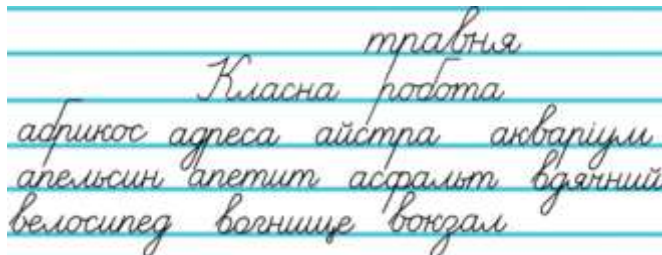 травня
Класна робота
абрикос адреса айстра акваріум
апельсин апетит асфальт вдячний
велосипед вогнище вокзал